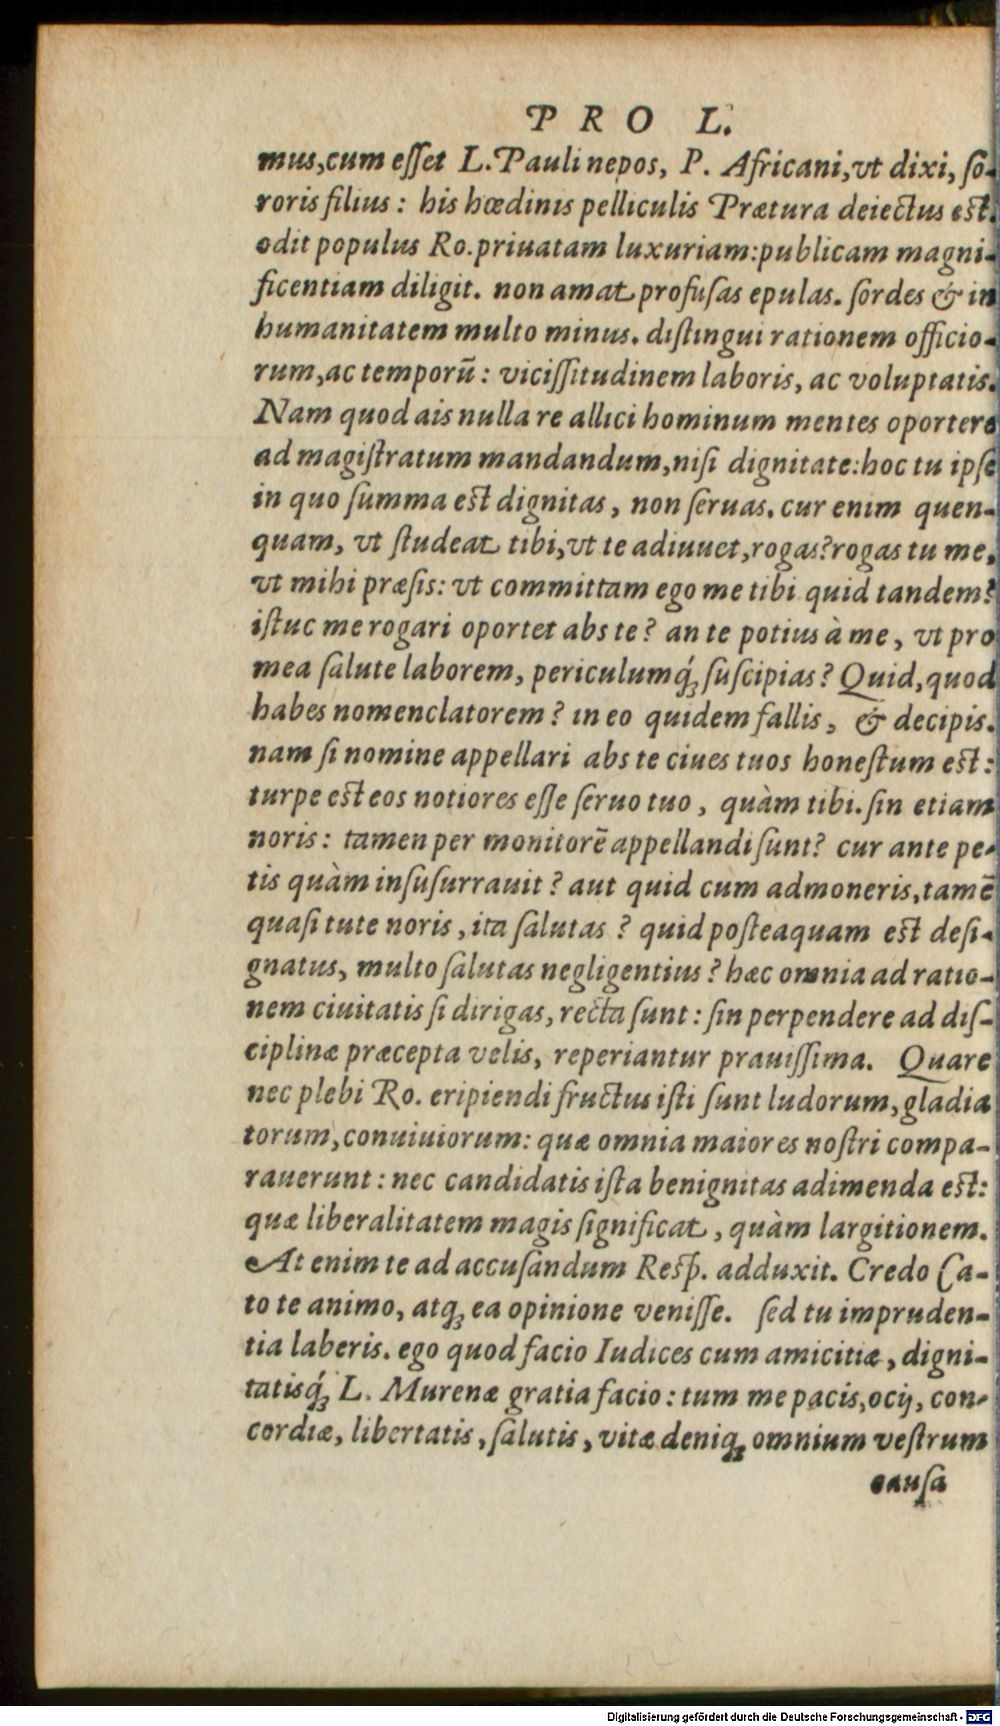 PRO L.
mus, cum eſſet L. Pauli nepos, P. Africani, vt dixi, ſo-
roris filius: his hœdinis pelliculis Prætura deiectus est.
odit populus Ro. priuatam luxuriam: publicam magni-
ficentiam diligit. non amat profuſas epulas. ſordes & in
humanitatem multo minus. diſtingui rationem officio-
rum, ac temporū: viciſſitudinem laboris, ac voluptatis.
Nam quod ais nulla re allici hominum mentes oportere
ad magiſtratum mandandum, niſi dignitate: hoc tu ipſe
in quo ſumma est dignitas, non ſeruas. cur enim quen-
quam, vt ſtudeat tibi, vt te adiuuet, rogas? rogas tu me,
vt mihi præſis: vt committam ego me tibi quid tandem?
iſtuc me rogari oportet abs te? an te potius à me, vt pro
mea ſalute laborem, periculumq́; ſuſcipias? Quid, quod
habes nomenclatorem? in eo quidem fallis, & decipis.
nam ſi nomine appellari abs te ciues tuos honeſtum est:
turpe est eos notiores eſſe ſeruo tuo, quàm tibi. ſin etiam
noris: tamen per monitorē appellandi ſunt? cur ante pe-
tis quàm inſuſurrauit? aut quid cum admoneris, tamē
quaſi tute noris, ita ſalutas? quid poſteaquam est deſi-
gnatus, multo ſalutas negligentius? hæc omnia ad ratio-
nem ciuitatis ſi dirigas, recta ſunt: ſin perpendere ad diſ-
ciplinæ præcepta velis, reperiantur prauiſſima. Quare
nec plebi Ro. eripiendi fructus iſti ſunt ludorum, gladia
torum, conuiuiorum: quæ omnia maiores noſtri compa-
rauerunt: nec candidatis iſta benignitas adimenda est:
quæ liberalitatem magis ſignificat, quàm largitionem.
At enim te ad accuſandum Reſp. adduxit. Credo Ca-
to te animo, atq; ea opinione veniſſe. ſed tu impruden-
tia laberis. ego quod facio Iudices cum amicitiæ, digni-
tatisq́; L. Murenæ gratia facio: tum me pacis, ocij, con-
cordiæ, libertatis, ſalutis, vitæ deniq; omnium veſtrum
cauſa
Digitalisierung gefördert durch die Deutsche Forschungsgemeinschaft - DFG